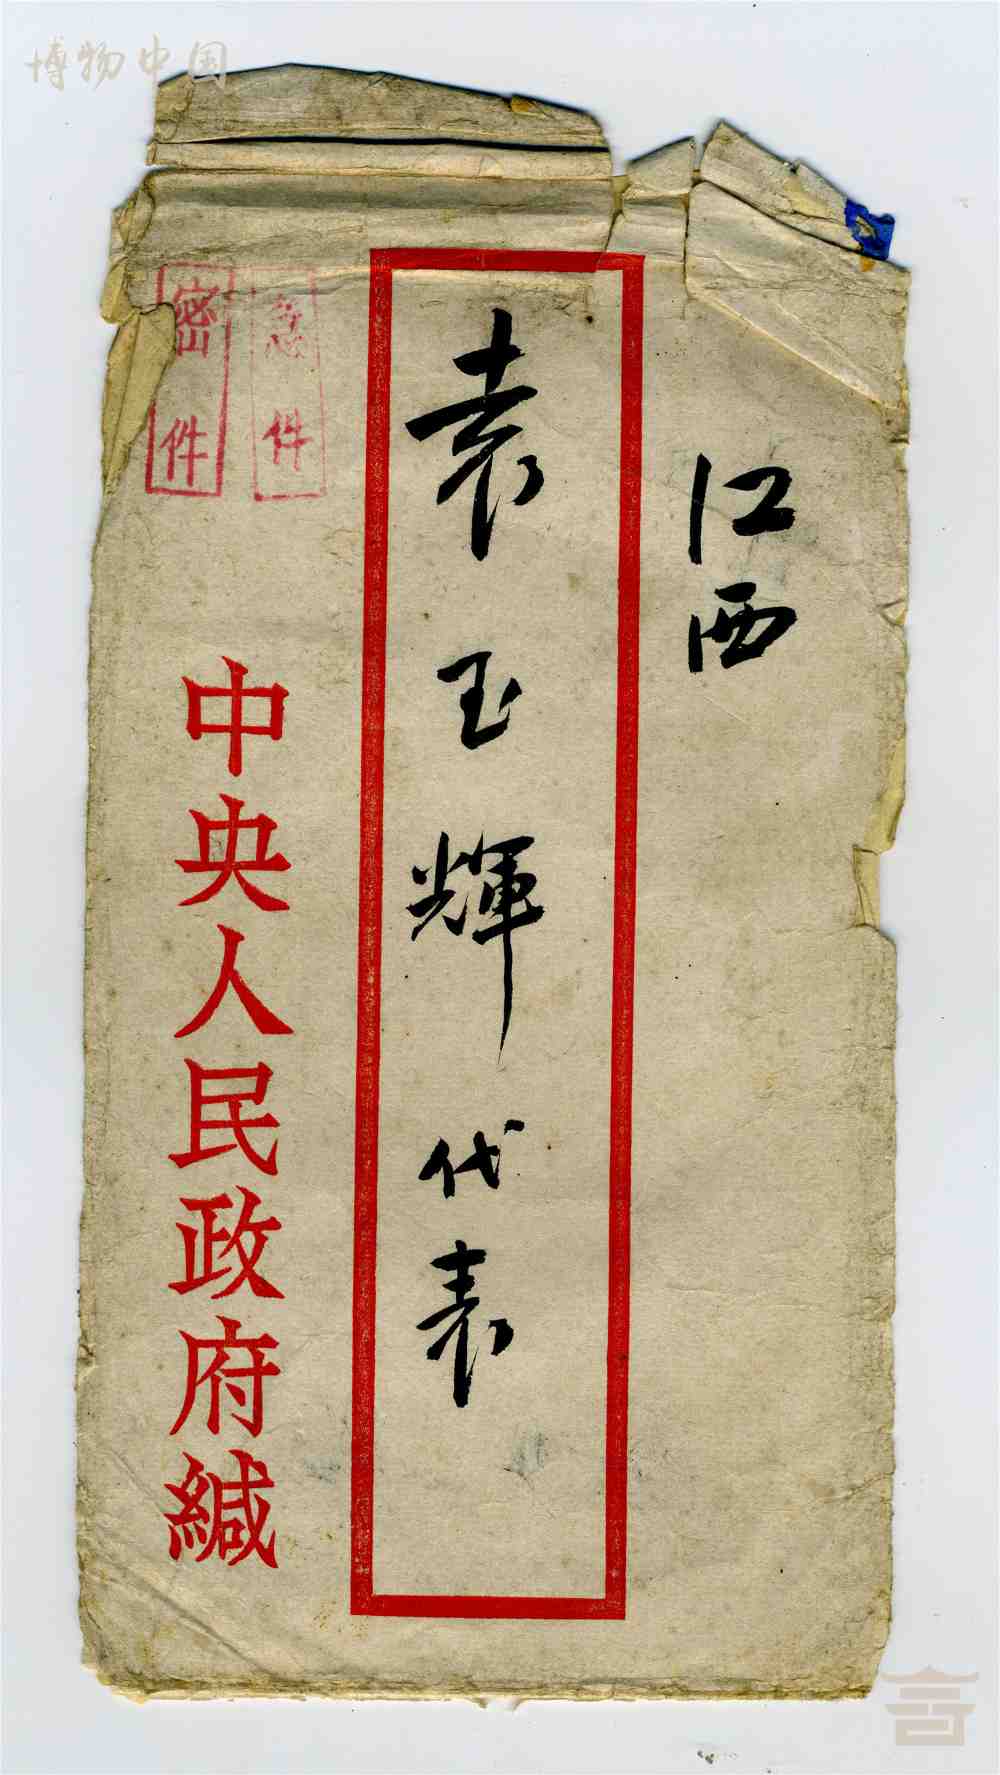 博物中国
江西
袁玉輝代表
急件
密件
中央人民政府緘